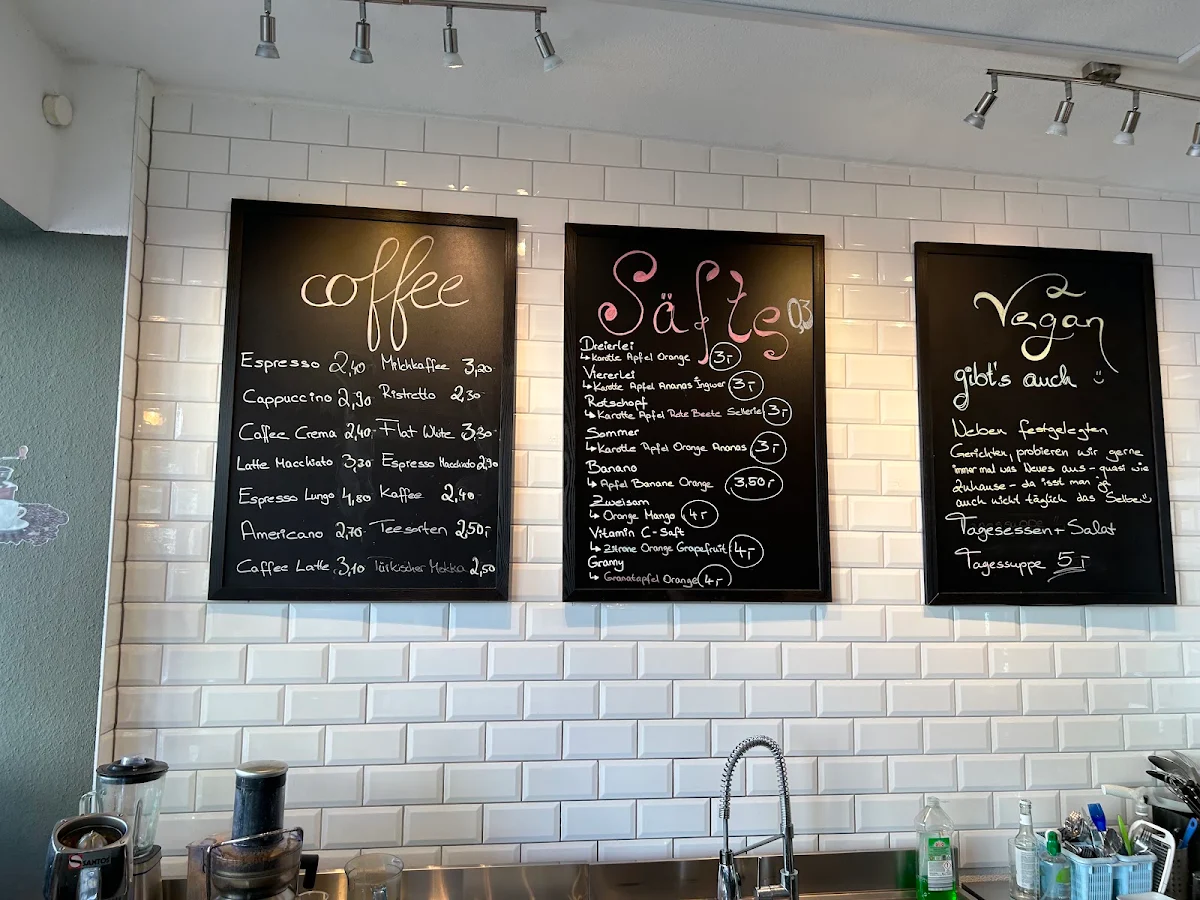 coffee
Espresso 2,40 Milchkaffee 3,20
Cappuccino 2,90 Ristretto 2,30
Caffee Crema 2,40 Flat White 3,30
Latte Macchiato 3,30 Espresso Macchiato 2,90
Espresso Lungo 4,80 Kaffee 2,40
Americano 2,70 Teesorten 2,50,-
Caffee Latte 3,10 Türkischer Mokka 2,50
Säfte 0,3
Dreierlei
↳ Karotte Apfel Orange 3,-
Viererlei
↳ Karotte Apfel Ananas Ingwer 3,-
Rotschopf
↳ Karotte Apfel Rote Beete Sellerie 3,-
Sommer
↳ Karotte Apfel Orange Ananas 3,-
Banano
↳ Apfel Banane Orange 3,50,-
Zweisam
↳ Orange Mango 4,-
Vitamin C-Saft
↳ Zitrone Orange Grapefruit 4,-
Grany
↳ Granatapfel Orange 4,-
Vegan
gibt's auch
Neben festgelegten
Gerichten, probieren wir gerne
immer mal was Neues aus - quasi wie
Zuhause - da isst man ja
auch nicht täglich das Selbe
Tagesessen + Salat
Tagessuppe 5,-
SANTOS